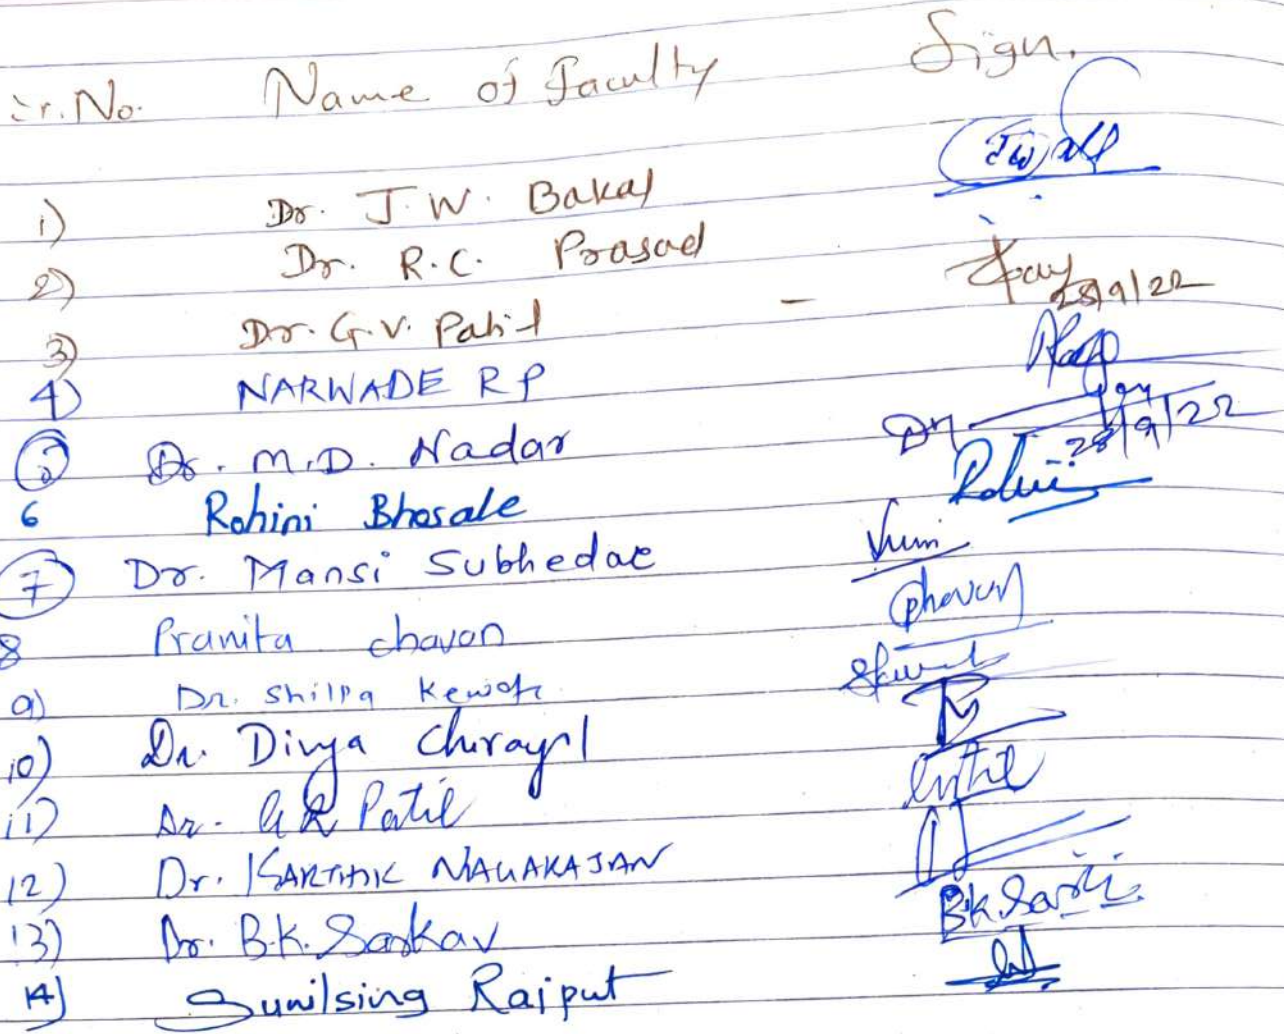 Sr. No. Name of Faculty Sign.
1) Dr. J.W. Bakal
2) Dr. R.C. Prasad
28/9/22
3) Dr. G.V. Patil -
4) NARWADE R P
5 Dr. M.D. Nadar 28/9/22
6 Rohini Bhosale Rohini
7 Dr. Mansi Subhedar
8 Pranita chavan Pchavan
9) Dr. Shilpa Kewate
10) Dr. Divya Chirayil
11) Dr. G R Patil
12) Dr. KARTHIK NAGARAJAN
13) Dr. B.K. Sarkar
14) Sunilsing Rajput